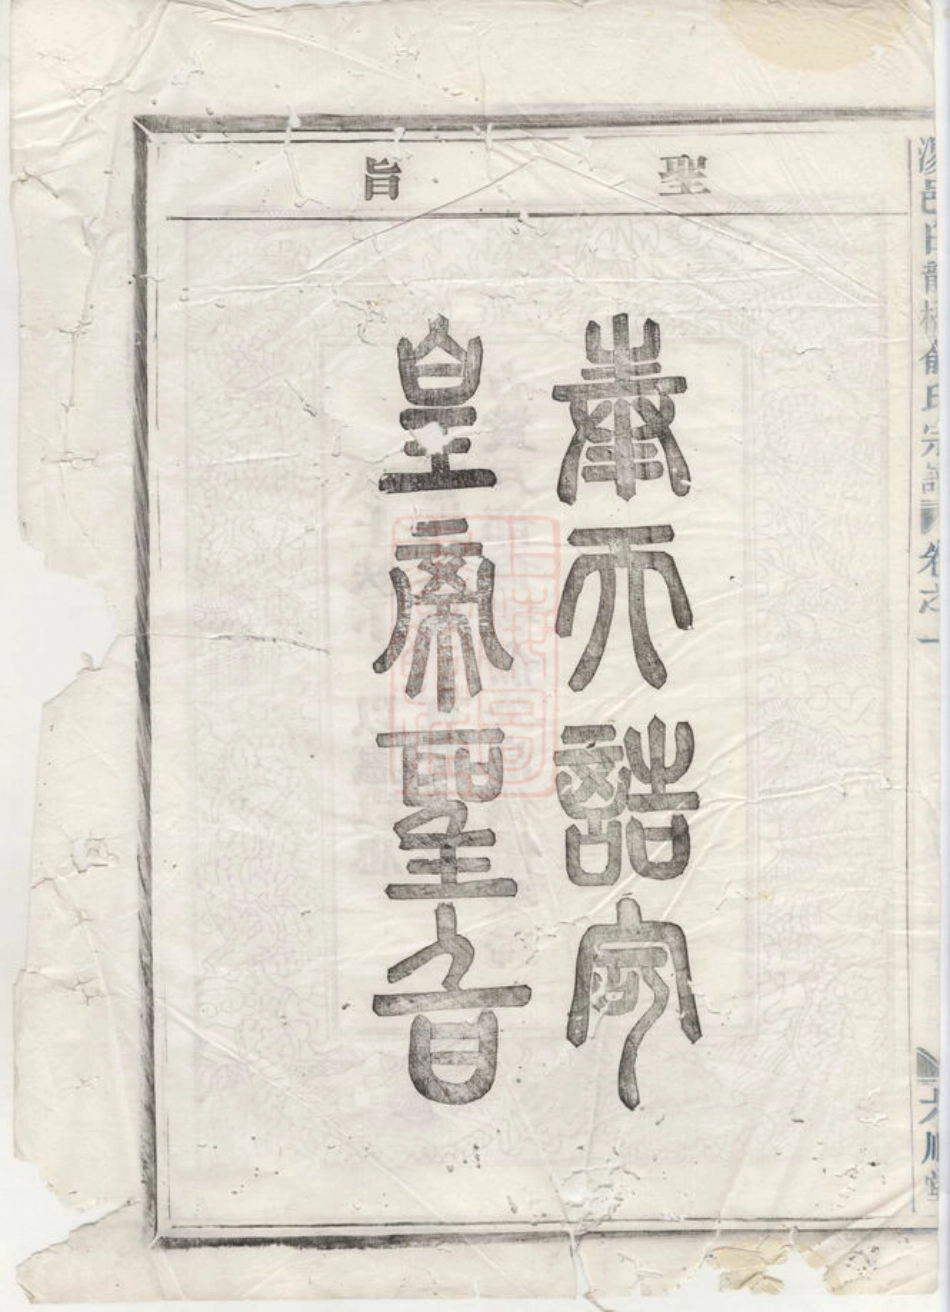 湯邑白龍橋俞氏宗譜 卷之一
六順堂
聖旨
奉天誥命
皇帝聖旨